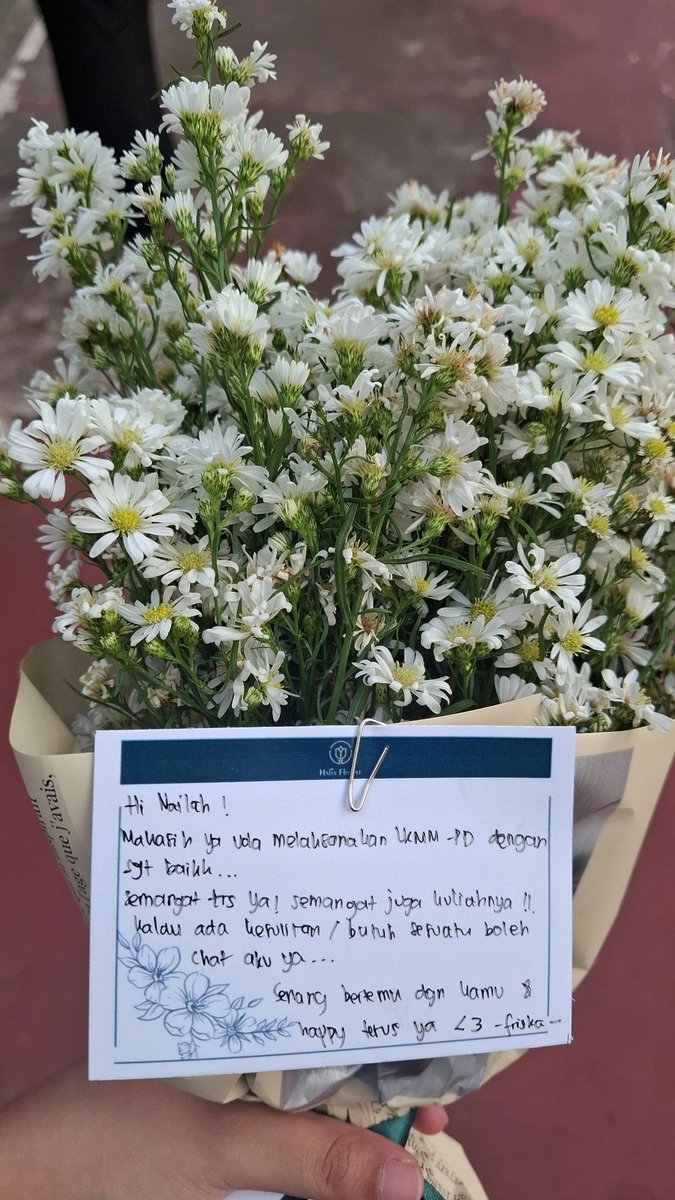 Halia Florist
Hi Nailah !
Makasih ya uda melaksanakan LKMM-PD dengan
sgt baikk...
semangat trs ya! semangat juga kuliahnya !!
kalau ada kesulitan / butuh sesuatu boleh
chat aku ya...
senang bertemu dgn kamu &
happy terus ya <3 -friska-
que j'avais,